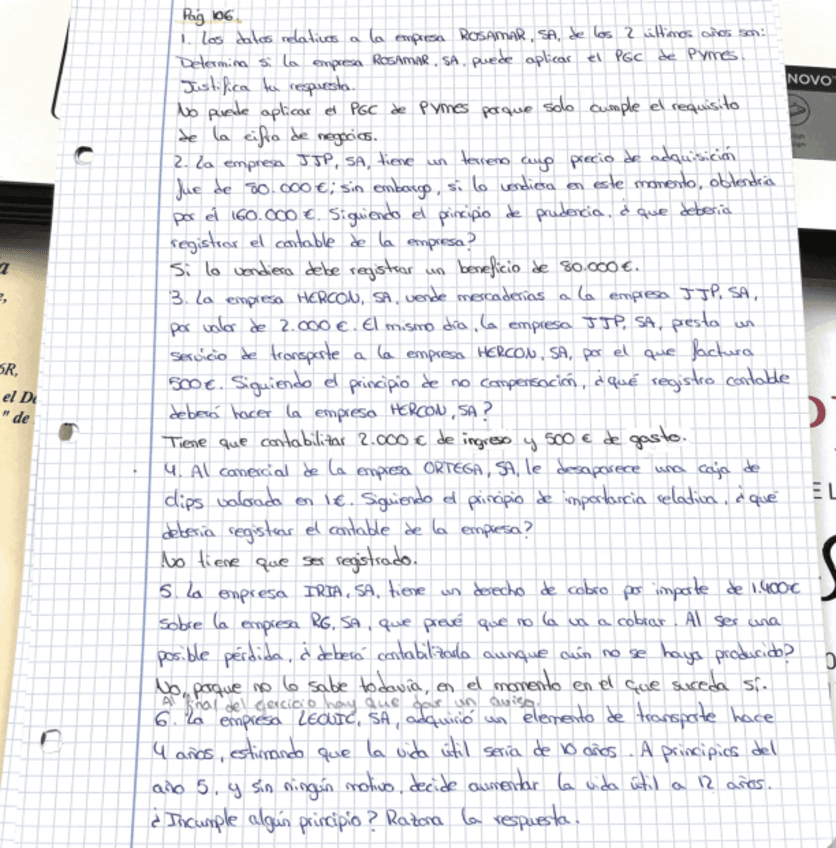 Pág 106.
1. Los datos relativos a la empresa ROSAMAR, SA, de los 2 últimos años son:
Determina si la empresa ROSAMAR, SA, puede aplicar el PGC de Pymes.
Justifica tu respuesta.
No puede aplicar el PGC de PYMES porque solo cumple el requisito
de la cifra de negocios.
2. La empresa JJP, SA, tiene un terreno cuyo precio de adquisición
fue de 80.000 €; sin embargo, si lo vendiera en este momento, obtendría
por él 160.000 €. Siguiendo el principio de prudencia, ¿que debería
registrar el contable de la empresa?
Si lo vendiera debe registrar un beneficio de 80.000 €.
3. La empresa HERCON, SA, vende mercaderías a la empresa JJP, SA,
por valor de 2.000 €. El mismo día, la empresa JJP, SA, presta un
servicio de transporte a la empresa HERCON, SA, por el que factura
500 €. Siguiendo el principio de no compensación, ¿qué registro contable
deberá hacer la empresa HERCON, SA?
Tiene que contabilitar 2.000 € de ingreso y 500 € de gasto.
4. Al comercial de la empresa ORTEGA, SA, le desaparece una caja de
clips valorada en 1€. Siguiendo el principio de importancia relativa, ¿qué
debería registrar el contable de la empresa?
No tiene que ser registrado.
5. La empresa IRIA, SA, tiene un derecho de cobro por importe de 1.400€
sobre la empresa RG, SA, que prevé que no la va a cobrar. Al ser una
posible pérdida, ¿deberá contabilizarla aunque aún no se haya producido?
No, porque no lo sabe todavía, en el momento en el que suceda sí.
Al final del ejercicio hay que dar un aviso.
6. La empresa LEQUIC, SA, adquirió un elemento de transporte hace
4 años, estimando que la vida útil sería de 10 años. A principios del
año 5, y sin ningún motivo, decide aumentar la vida útil a 12 años.
¿Incumple algún principio? Razona la respuesta.
NOVO
6R,
el De
" de